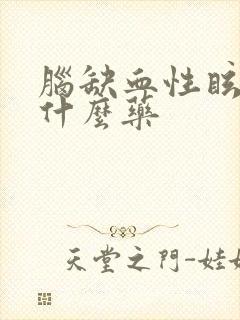 腦缺血性眩
什麼藥
天堂之門-娃